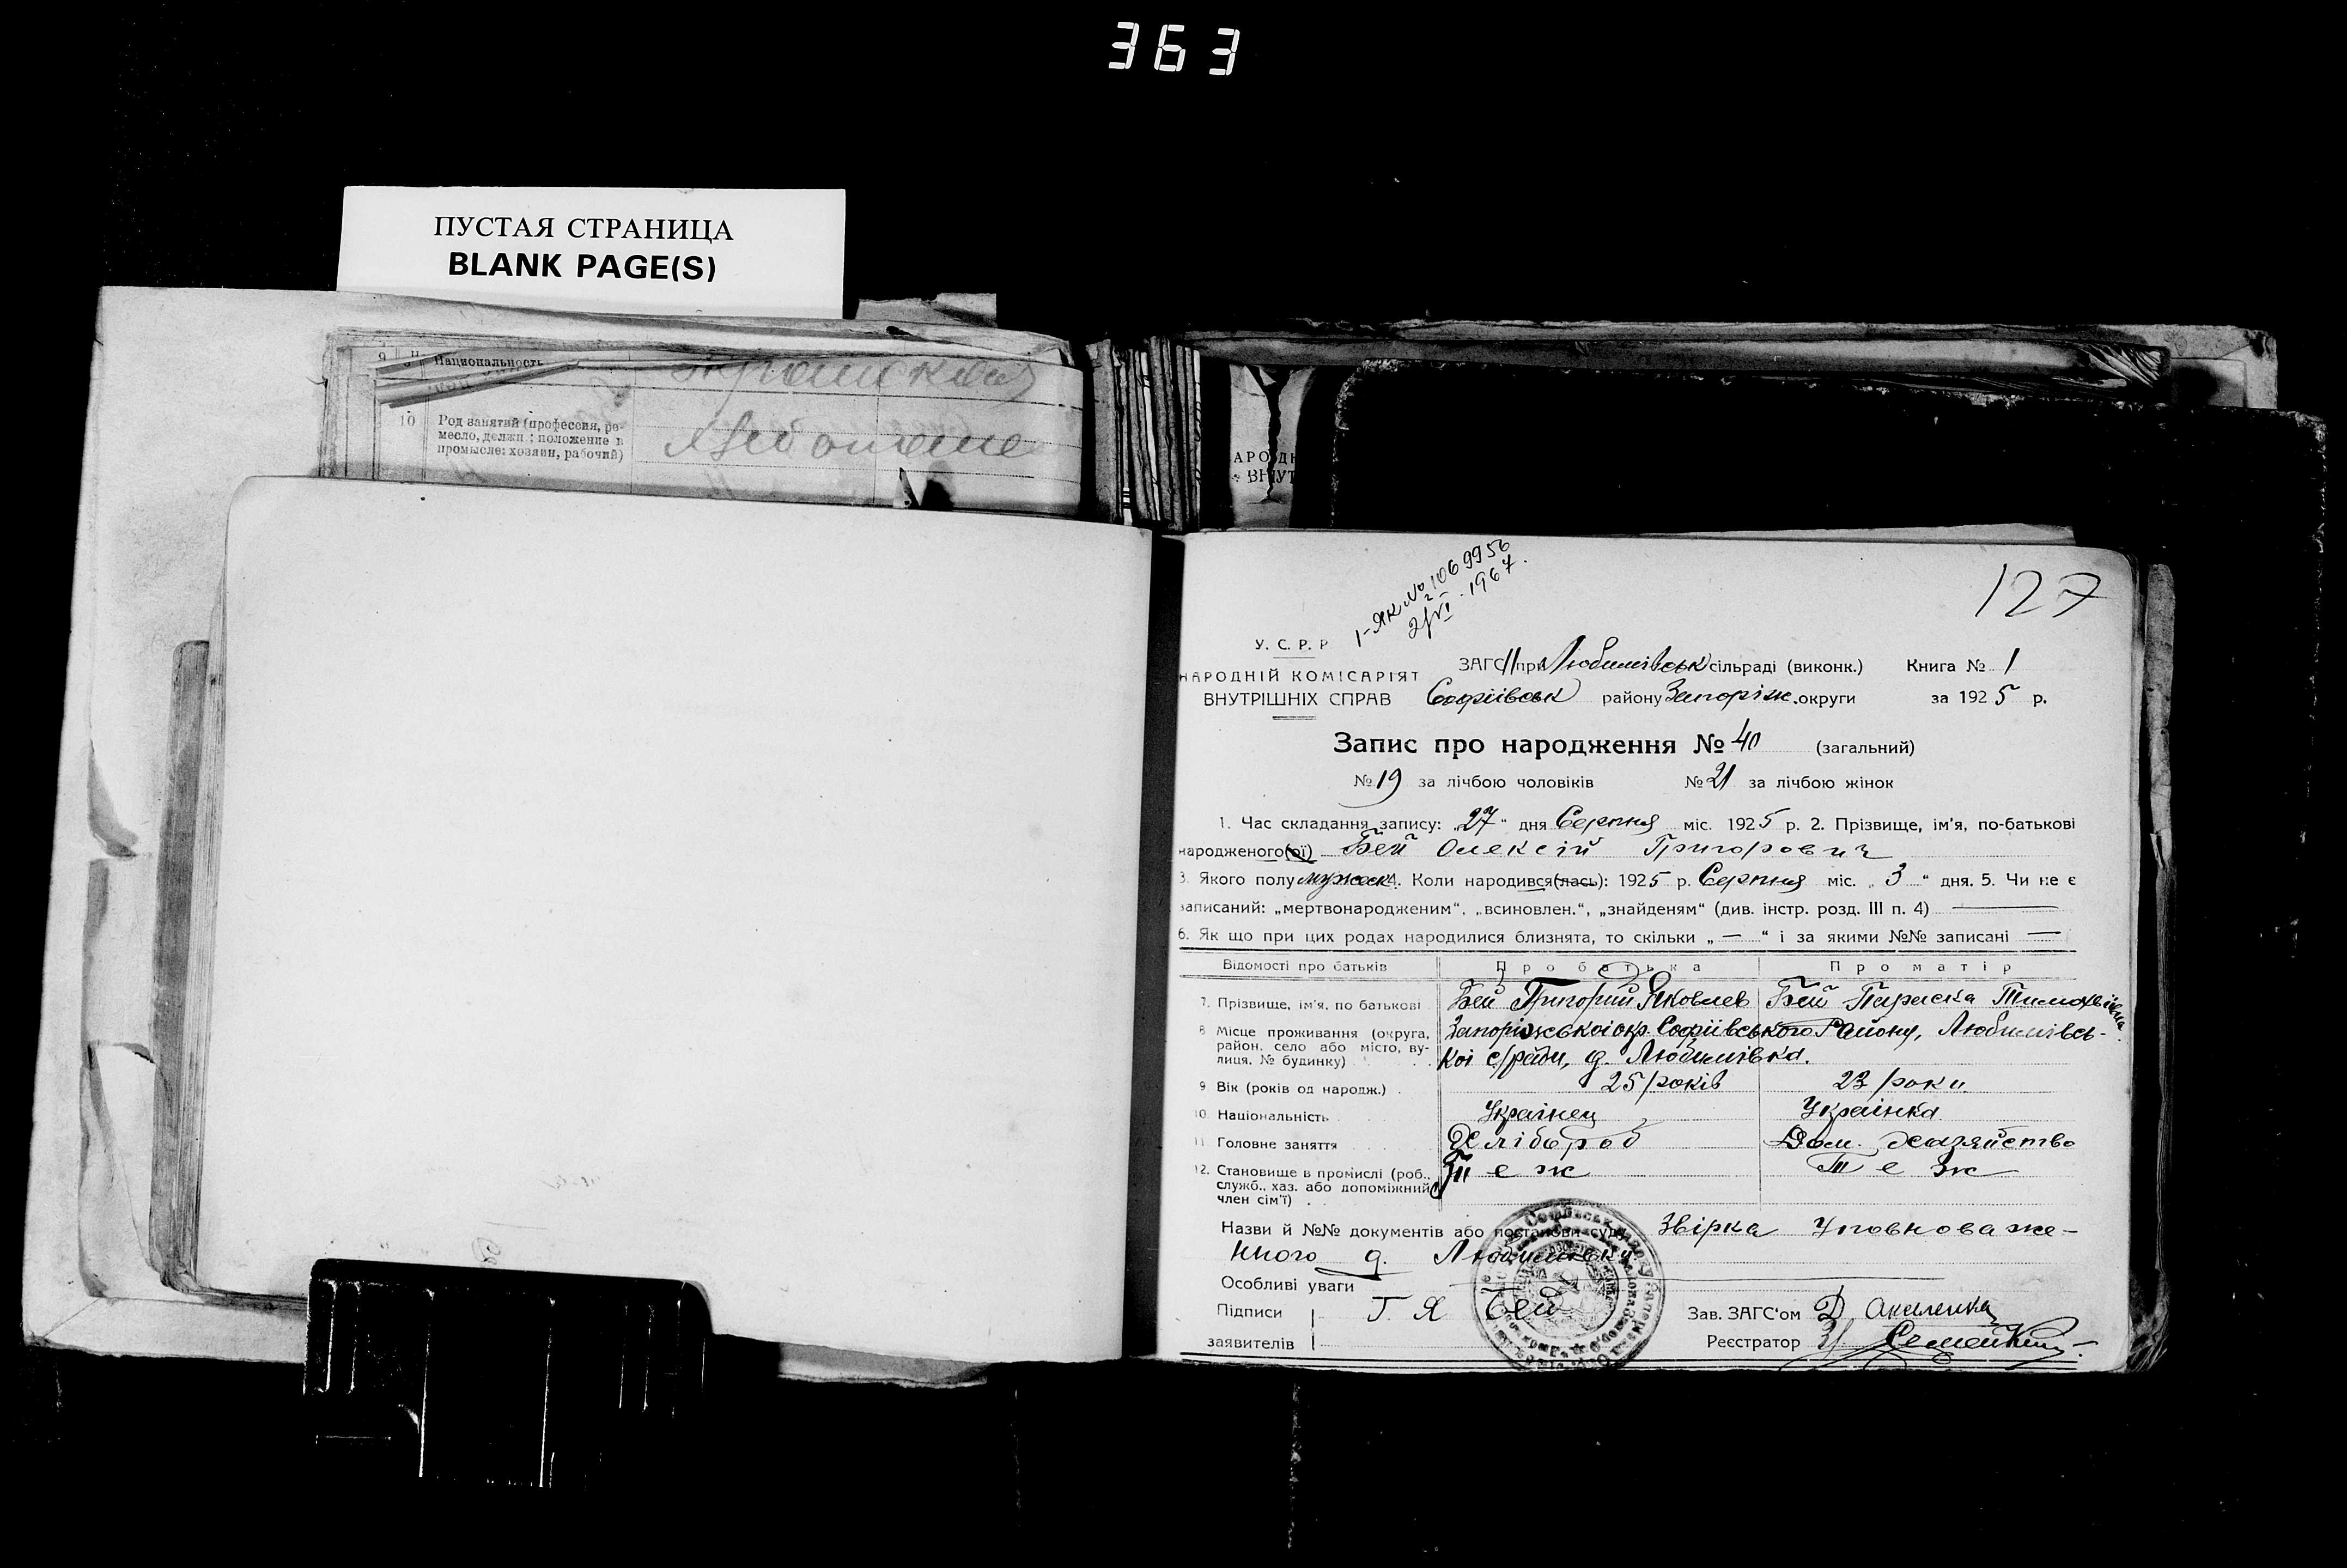 363
ПУСТАЯ СТРАНИЦА
BLANK PAGE(S)
9 Национальность
10 Род занятий (профессия, ре-
месло, должн.; положение в
промысле: хозяин, рабочий)
АРОДН
ВНУТ
1-ЯК № 1069956
2/VI.1967.
127
У. С. Р. Р
НАРОДНІЙ КОМІСАРІЯТ
ВНУТРІШНІХ СПРАВ
ЗАГС при Любимівськ сільраді (виконк.) Книга № 1
Софіївськ району Запоріж. округи за 1925 р.
Запис про народження № 40 (загальний)
№ 19 за лічбою чоловіків № 21 за лічбою жінок
1. Час складання запису: „27“ дня Серпня міс. 1925 р. 2. Прізвище, ім'я, по-батькові
народженого(ої) Бей Олексій Григорович
3. Якого полу мужеск. Коли народився(лась): 1925 р. Серпня міс. „3“ дня. 5. Чи не є
записаний: „мертвонародженим“, „всиновлен.“, „знайденям“ (див. інстр. розд. III п. 4)
6. Як що при цих родах народилися близнята, то скільки „—“ і за якими №№ записані —
Відомості про батьків Про батька Про матір
7. Прізвище, ім'я, по батькові Бей Григорий Яковлев Бей Параска Тимохвіївна
8 Місце проживання (округа, район, село або місто, ву-лиця, № будинку) Запоріжської окр. Софіївського Району, Любимівсь-
кої с/ради, д. Любимівка.
9 Вік (років од народж.) 25 років 23 роки
10. Національність Українец Українка
11 Головне заняття Хлібороб Дом. хазяйство
12. Становище в промислі (роб., служб., хаз. або допоміжний член сім'ї) Те ж Те ж
Назви й №№ документів або постанови суду Звірка Уповноваже-
нного д. Любимівки
Особливі уваги
Підписи Г. Я Бей Зав. ЗАГС'ом
заявителів Реєстратор